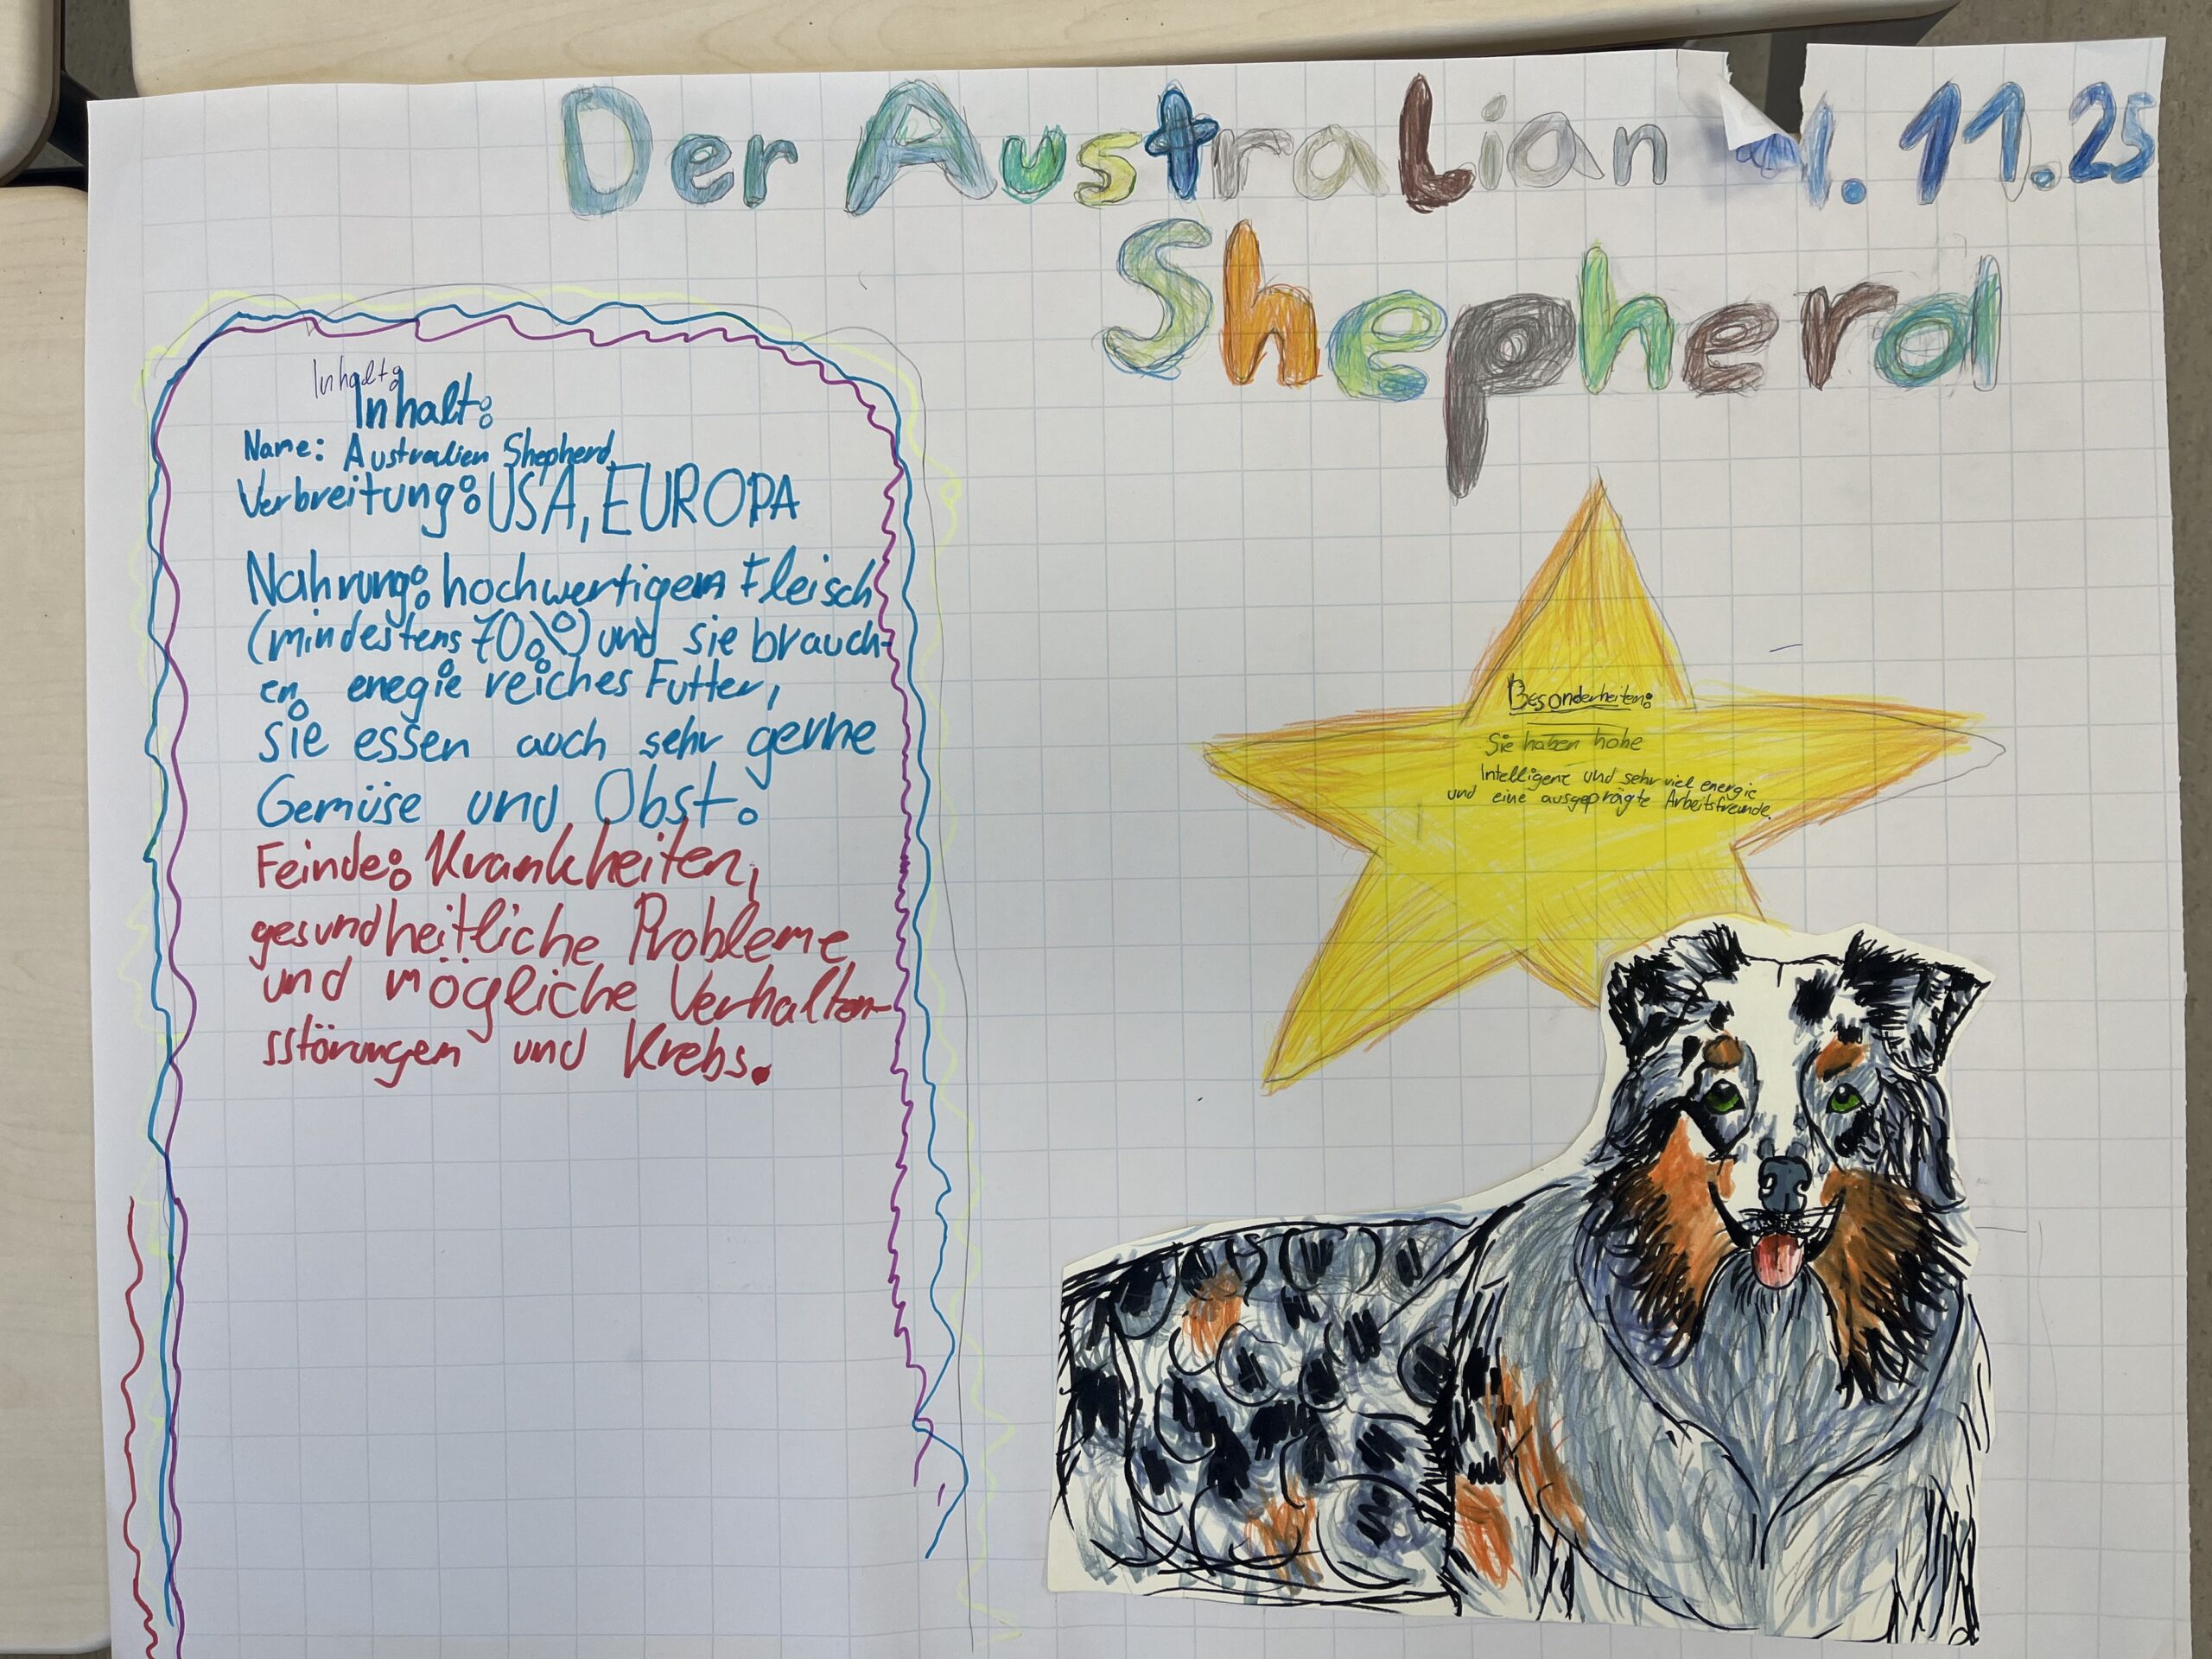 Der Australian
1. 11.25
Shepherd
Inhalt:
Inhalt:
Name: Australien Shepherd
Verbreitung: USA, EUROPA
Nahrung: hochwertigem Fleisch
(mindestens 70%) und sie brauch-
en enegie reiches Futter,
sie essen auch sehr gerne
Gemüse und Obst.
Feinde: Krankheiten,
gesundheitliche Probleme
und mögliche Verhalten-
sstörungen und Krebs.
Besonderheiten:
Sie haben hohe
Intelligenz und sehr viel energie
und eine ausgeprägte Arbeitsfreude.